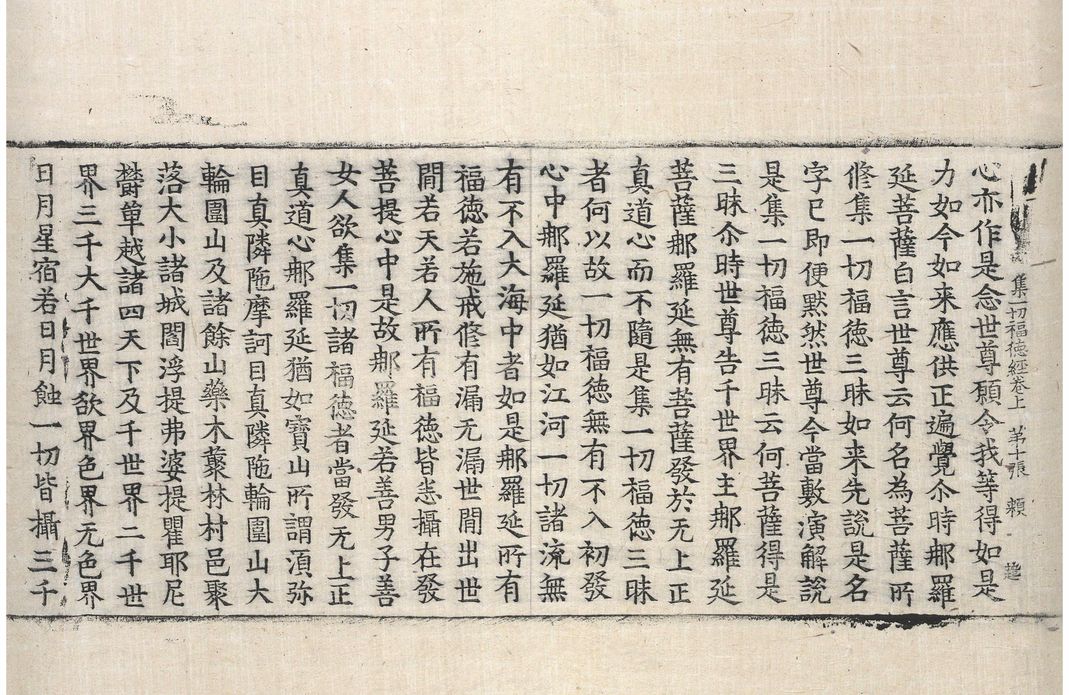 集一切福德經卷上 苐十張 賴
心亦作是念世尊願令我等得如是
力如今如来應供正遍覺尒時郍羅
延菩薩白言世尊云何名為菩薩所
修集一切福德三昧如来先說是名
字已即便默然世尊今當敷演解說
是集一切福德三昧云何菩薩得是
三昧尒時世尊告千世界主郍羅延
菩薩郍羅延無有菩薩發於无上正
真道心而不隨是集一切福德三昧
者何以故一切福德無有不入初發
心中郍羅延猶如江河一切諸流無
有不入大海中者如是郍羅延所有
福德若施戒修有漏无漏世間出世
間若天若人所有福德皆悉攝在發
菩提心中是故郍羅延若善男子善
女人欲集一切諸福德者當發无上正
真道心郍羅延猶如寶山所謂湏弥
目真隣陁摩訶目真隣陁輪圍山大
輪圍山及諸餘山藥木藂林村邑聚
落大小諸城閻浮提弗婆提瞿耶尼
欝單越諸四天下及千世界二千世
界三千大千世界欲界色界无色界
日月星宿若日月蝕一切皆攝三千